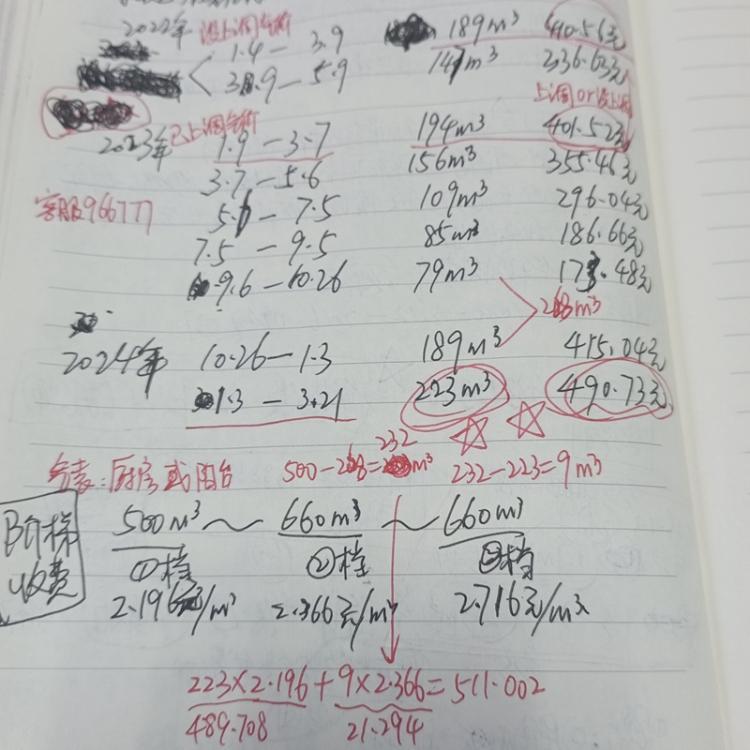 2022年 没上调气价
1.4 - 3.9 189m³ 410.56元
3.9 - 5.9 147m³ 336.63元
上调or没上调
2023年 已上调气价
1.9 - 3.7 194m³ 401.52元
3.7 - 5.6 156m³ 355.46元
客服966777
5.6 - 7.5 109m³ 296.04元
7.5 - 9.5 85m³ 186.66元
9.6 - 10.26 79m³ 173.48元
268m³
2024年 10.26 - 1.3 189m³ 415.04元
1.3 - 3.21 223m³ 490.73元
气表:厨房或阳台 500-268=232m³ 232-223=9m³
阶梯收费
500m³ ~ 660m³ ~ 660m³
①档 ②档 ③档
2.196元/m³ 2.366元/m³ 2.716元/m³
223×2.196+9×2.366=511.002
489.708 21.294